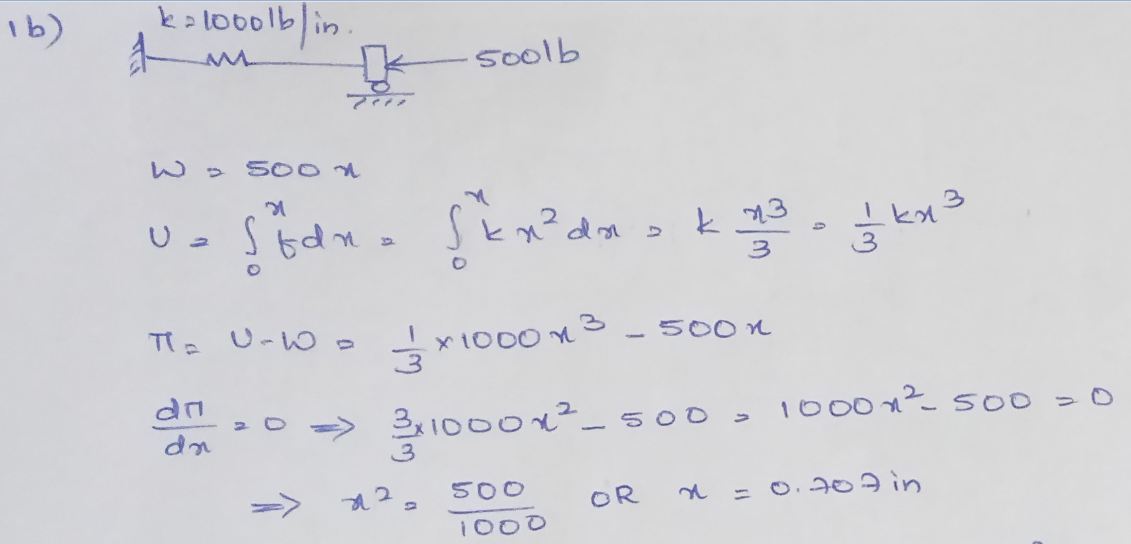 1b) k=1000lb/in.
500lb
W = 500 x
U = ∫₀ˣ f dx = ∫₀ˣ kx² dx = k x³/3 = 1/3 kx³
π = U-W = 1/3 × 1000x³ - 500x
dπ/dx = 0 ⇒ 3/3 × 1000x² - 500 = 1000x² - 500 = 0
⇒ x² = 500/1000 OR x = 0.707in